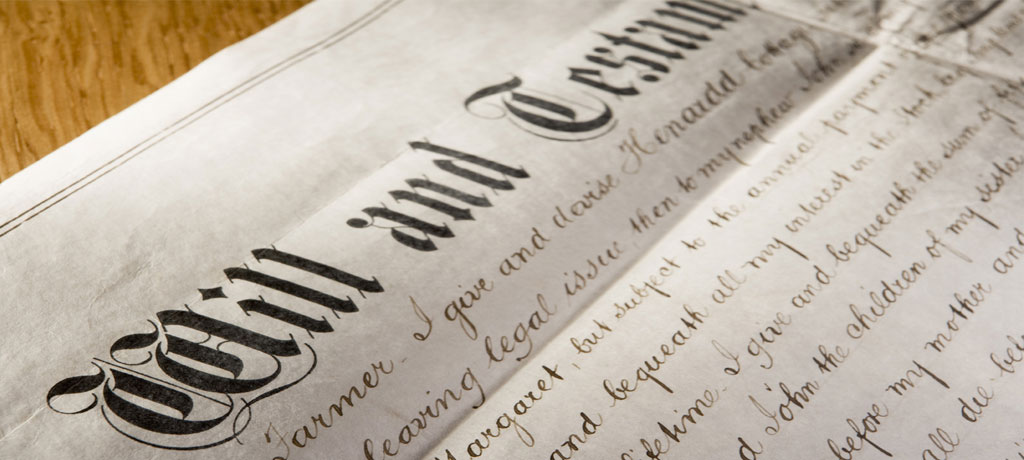 Will and Testam
Farmer. I give and devise
leaving legal issue then to my nephew John
Margaret, but subject to the annual payment
and bequeath all my interest in the stock
lifetime. I give and bequeath the sum of
d John the children of my sister
before my mother and
all die